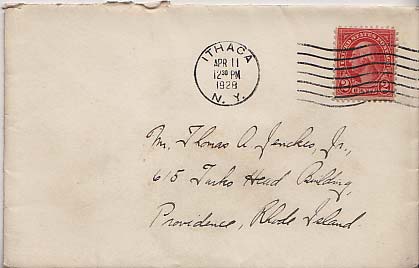 ITHACA
APR 11
12 30 PM
1928
N. Y.
UNITED STATES POSTAGE
2 CENTS 2
Mr. Thomas A. Jenckes, Jr.,
615 Turks Head Building,
Providence, Rhode Island.